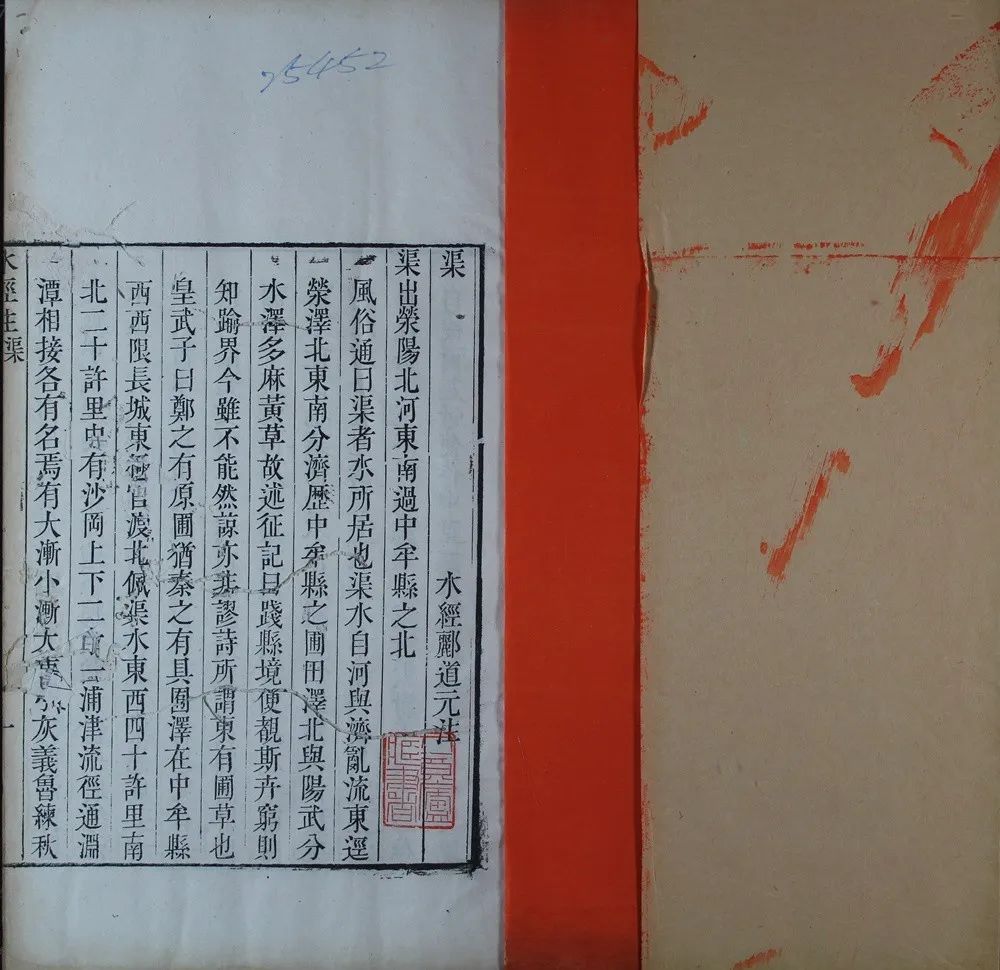 25452
渠
水經酈道元注
渠出滎陽北河東南過中牟縣之北
風俗通曰渠者水所居也渠水自河與濟亂流東逕
滎澤北東南分濟歷中牟縣之圃田澤北與陽武分
水澤多麻黃草故述征記曰踐縣境便覩斯卉窮則
知踰界今雖不能然諒亦非謬詩所謂東有圃草也
皇武子曰鄭之有原圃猶秦之有具囿澤在中牟縣
西西限長城東極官渡北佩渠水東西四十許里南
北二十許里中有沙岡上下二十浦津流徑通淵
潭相接各有名焉有大漸小漸大灰義魯練秋
水經注渠
一